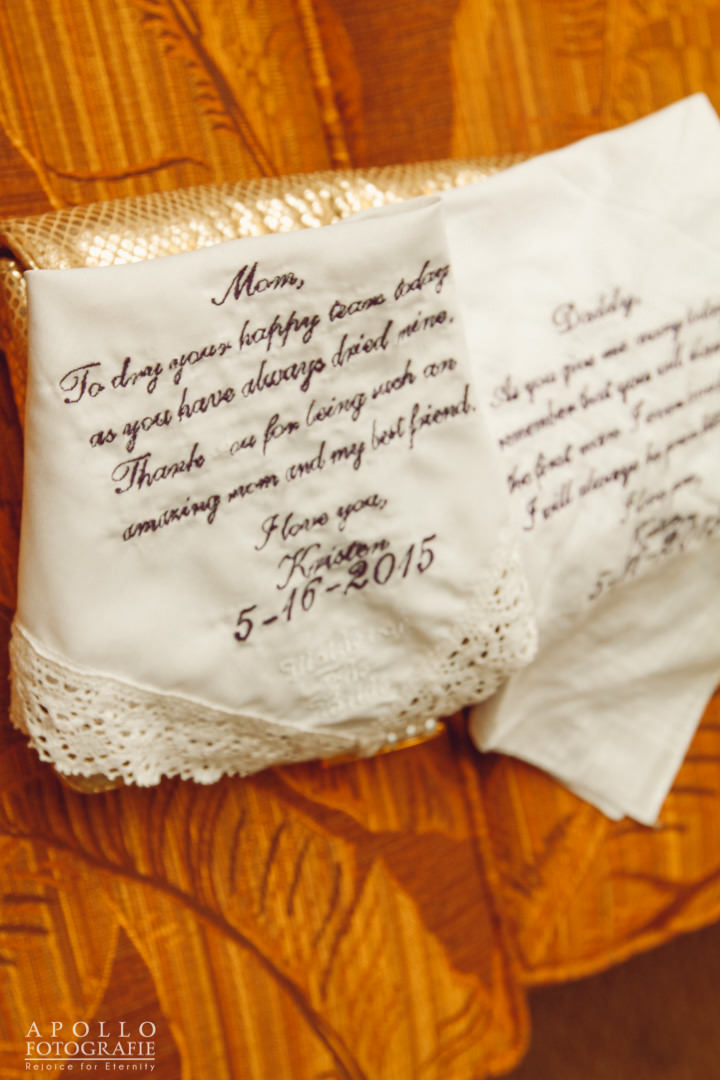 Mom,
To dry your happy tears today
as you have always dried mine.
Thank ou for being such an
amazing mom and my best friend.
I love you,
Kristen
5-16-2015
Daddy,
As you give me away today
remember that you will
the first man I
I will always be
I love you,
Kristen
APOLLO
FOTOGRAFIE
Rejoice for Eternity